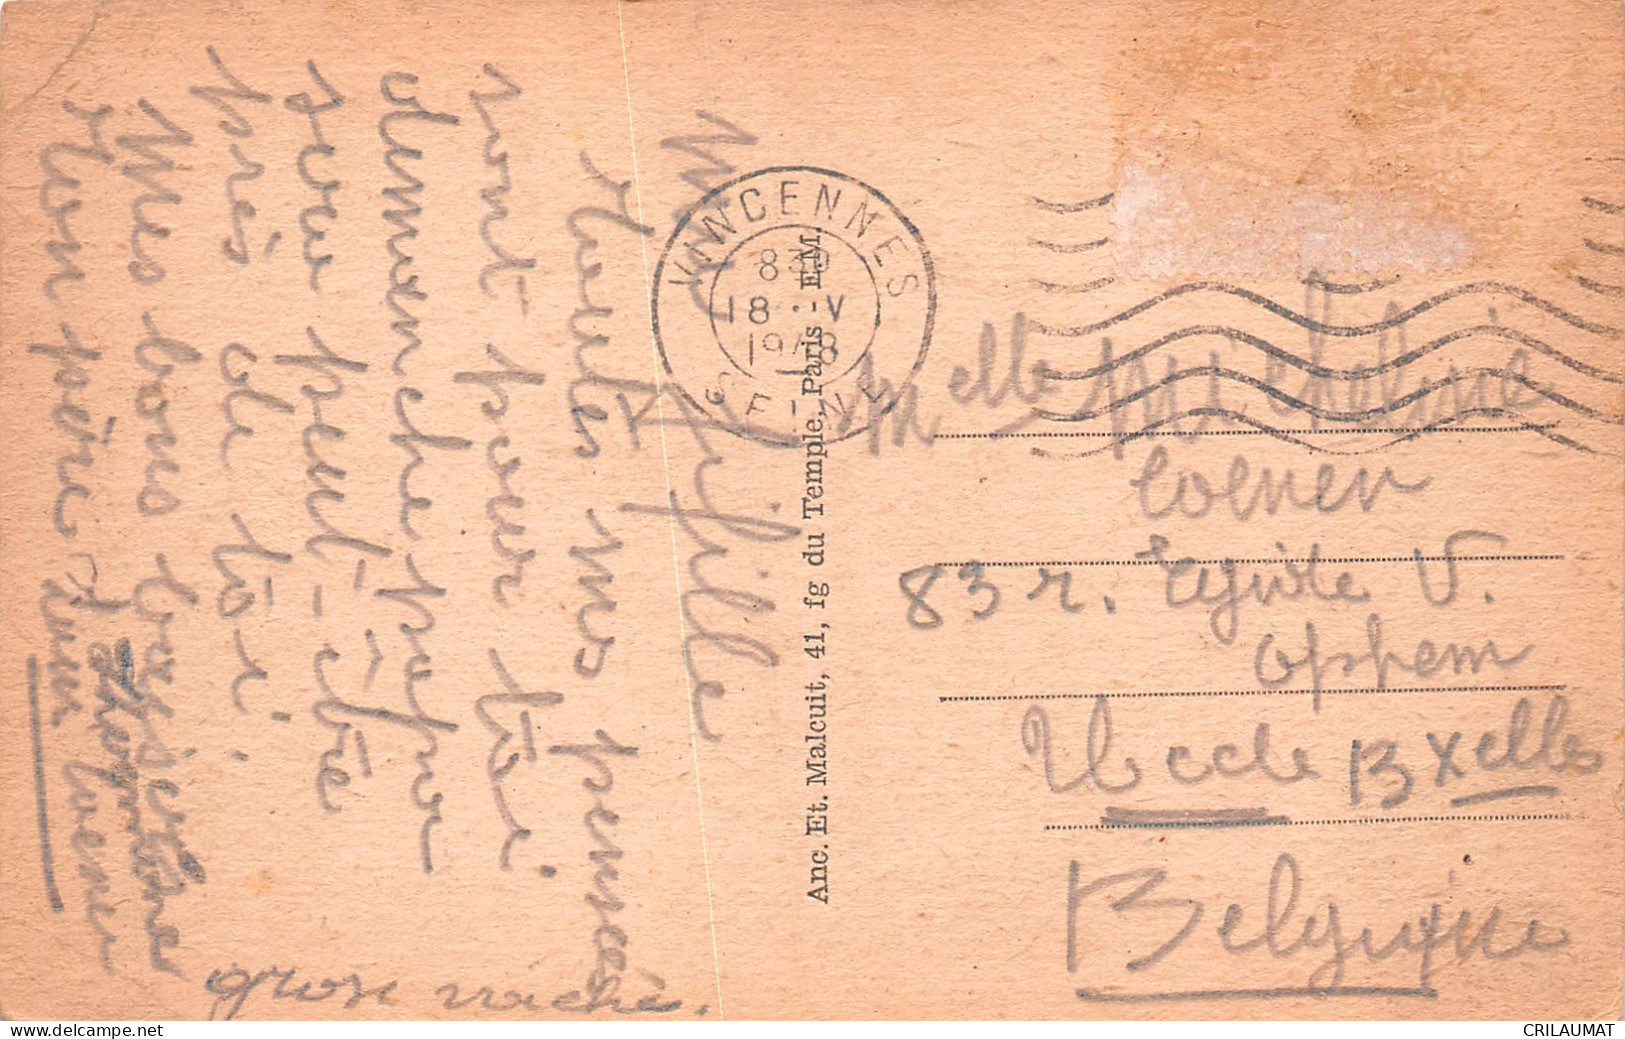 Ma fille
Toutes mes pensées
sont pour toi
dimanche papa
sera peut-être
près de toi.
Mes bons baisers
Ton père
grose vache.
VINCENNES
8 30
18 - V
1948
SEINE
Anc. Et. Malcuit, 41, fg du Temple, Paris - E.M.
Melle Micheline
Coenen
83 r. Egide V.
Ophem
Uccle Bxelles
Belgique
CRILAUMAT